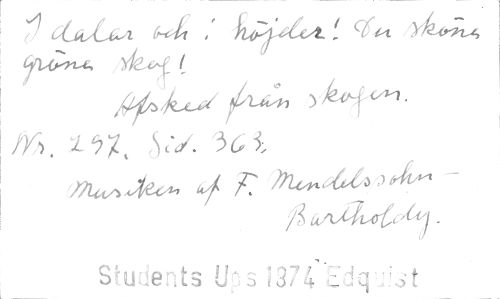 I dalar och i höjder! Du sköna
gröna skog!
Afsked från skogen.
Nr. 297. Sid. 363.
Musiken af F. Mendelssohn-
Bartholdy.
Students Ups 1874 Edquist